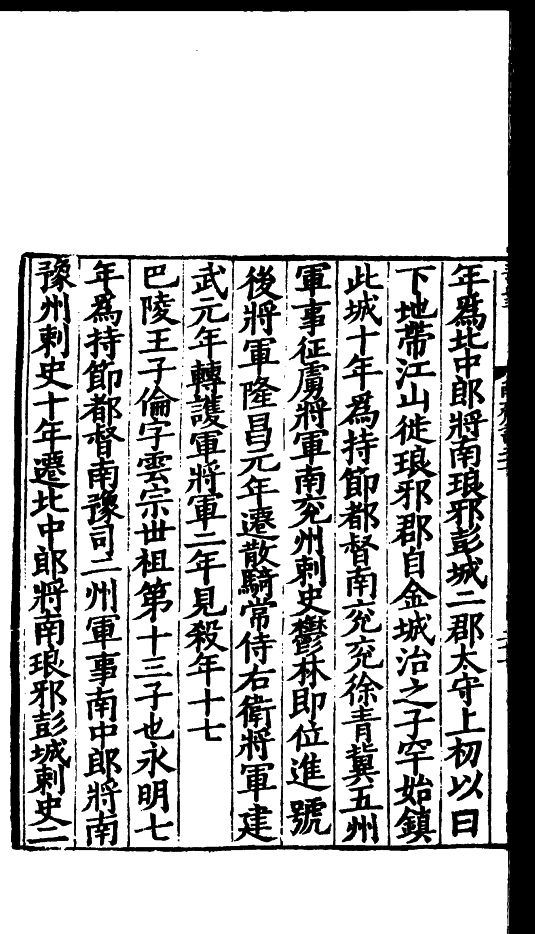 年爲北中郎將南琅邪彭城二郡太守上初以白
下地帶江山徙琅邪郡自金城治之子罕始鎮
此城十年爲持節都督南兗兗徐青冀五州
軍事征虜將軍南兗州刺史鬱林即位進號
後將軍隆昌元年遷散騎常侍右衛將軍建
武元年轉護軍將軍二年見殺年十七
巴陵王子倫字雲宗世祖第十三子也永明七
年爲持節都督南豫司二州軍事南中郎將南
豫州刺史十年遷北中郎將南琅邪彭城刺史二